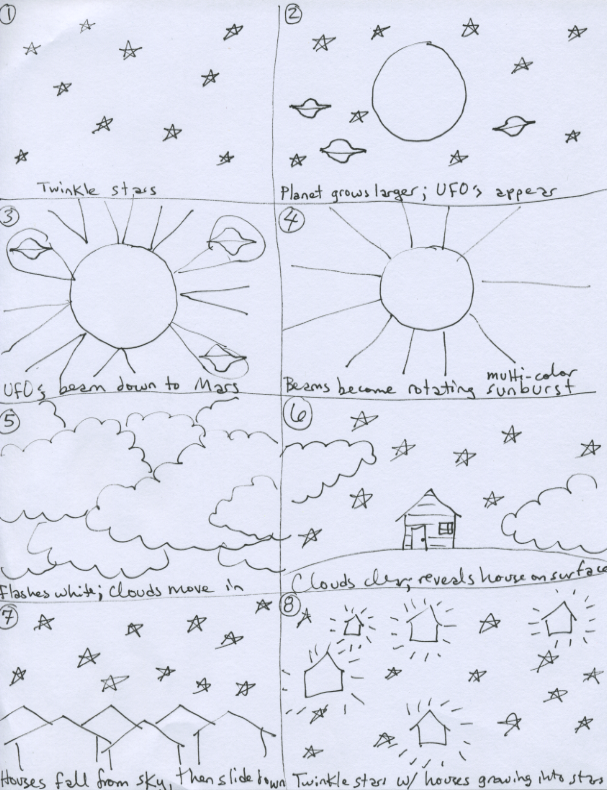 1
Twinkle stars
2
Planet grows larger; UFOs appear
3
UFOs beam down to Mars
4
Beams become rotating multi-color sunburst
5
Flashes white; clouds move in
6
Clouds clear; reveals house on surface
7
Houses fall from sky, then slide down
8
Twinkle stars w/ houses growing into stars